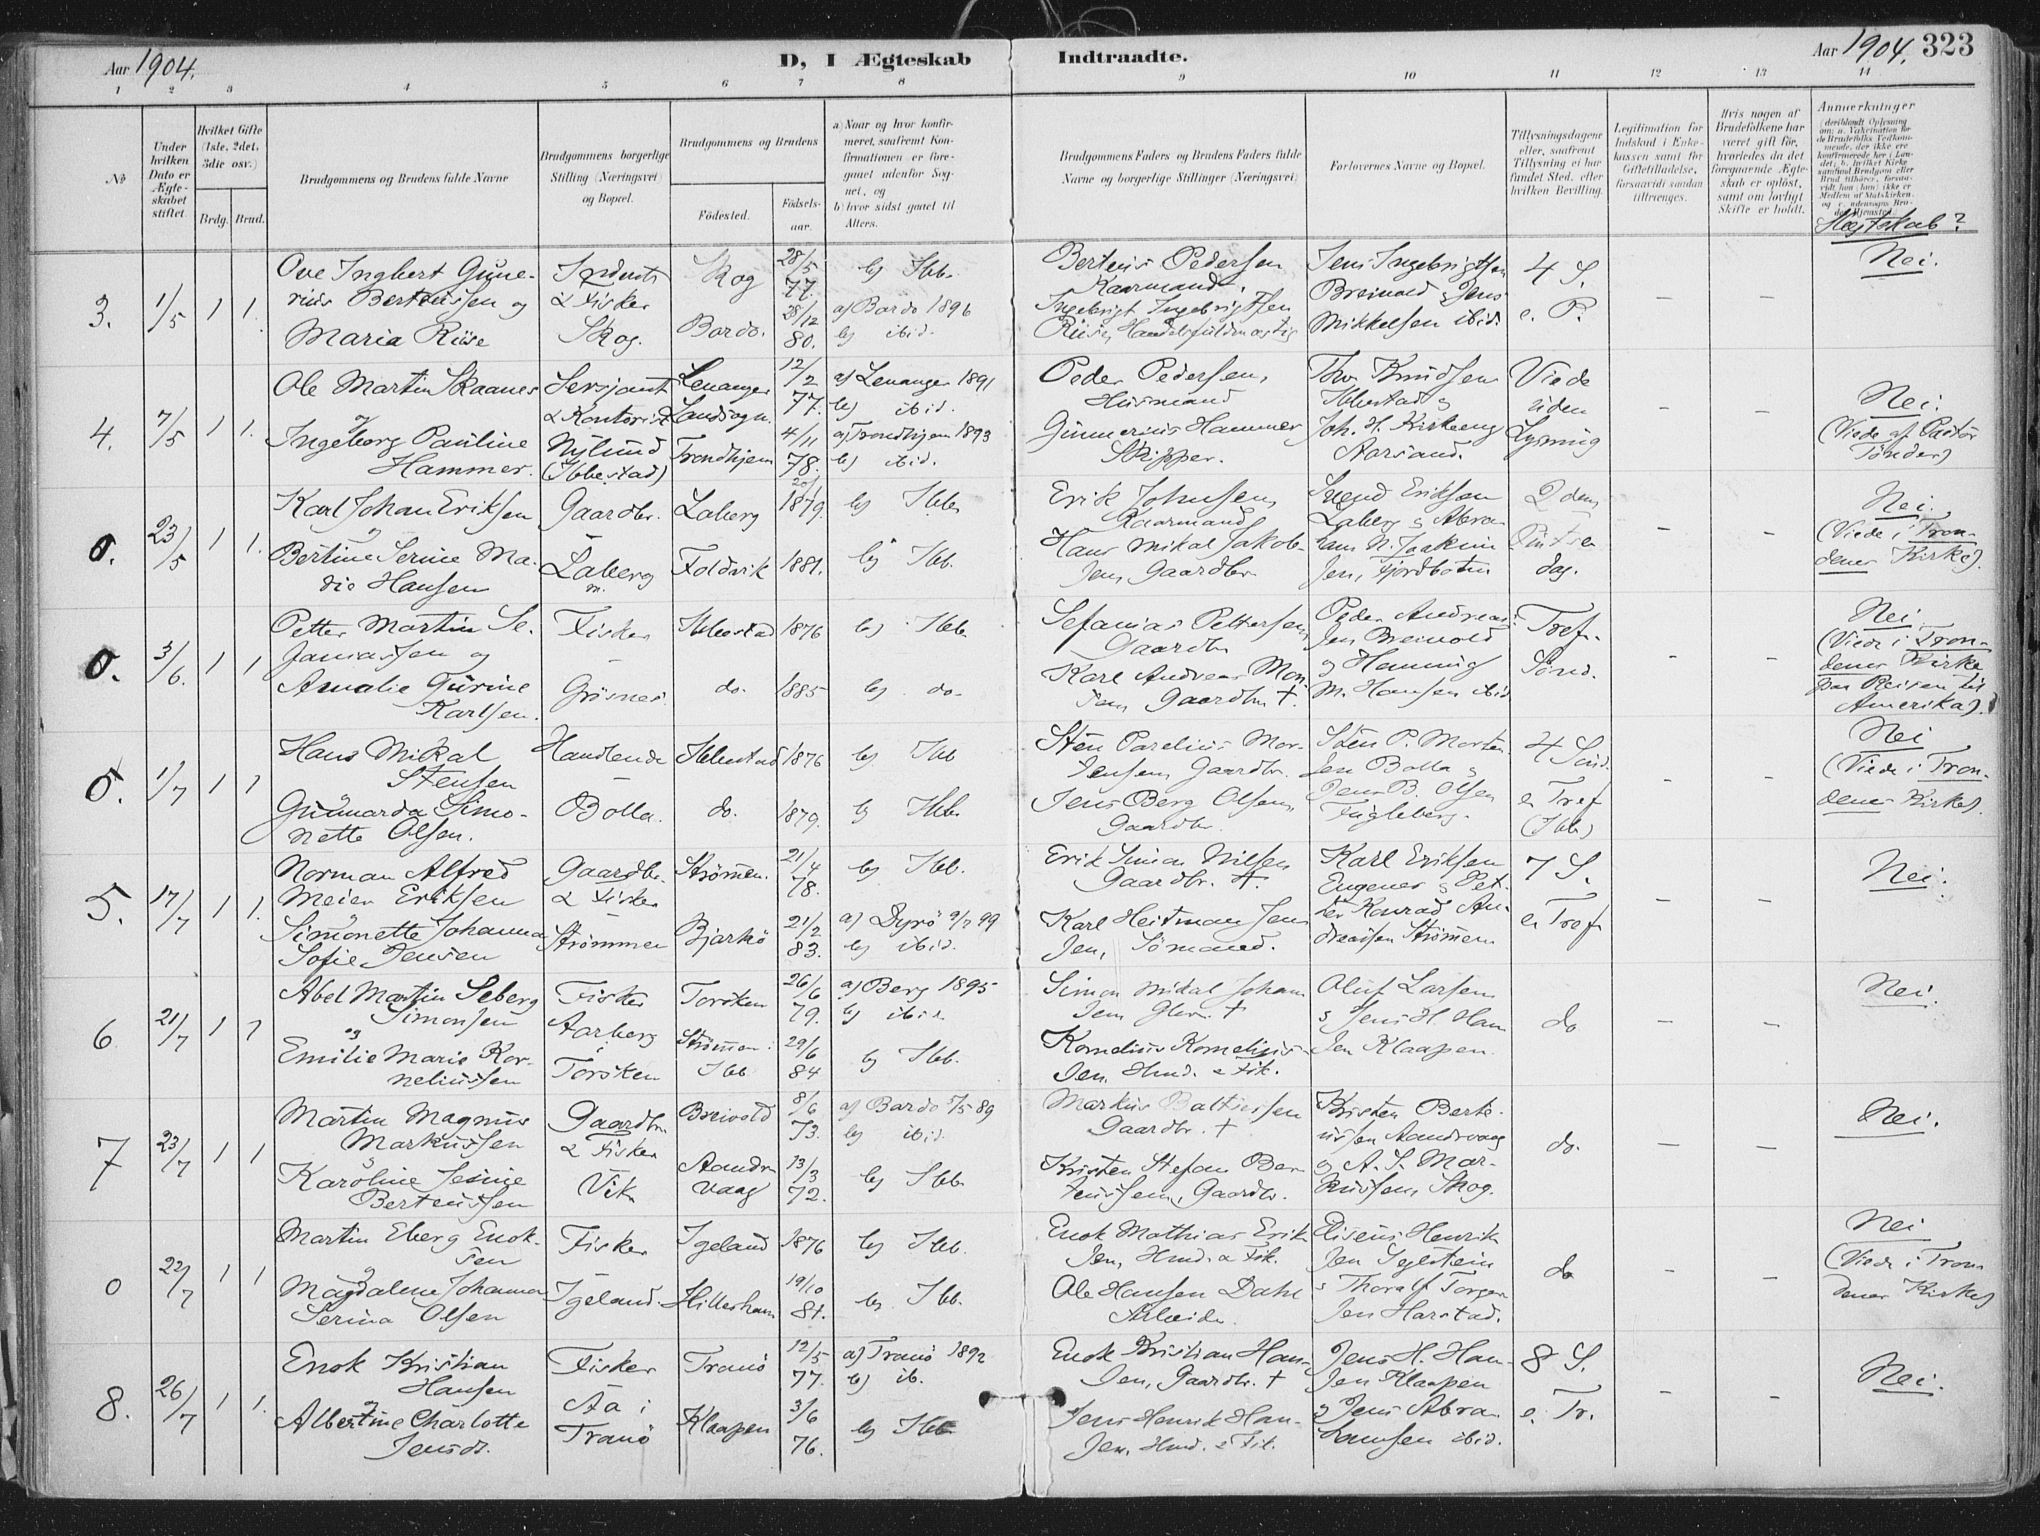 Aar 1904.
D, I Ægteskab Indtraadte.
Aar 1904. 323
1 2 3 4 5 6 7 8 9 10 11 12 13 14
No
Under hvilken Dato er Ægteskabet stiftet.
Hvilket Gifte (1ste, 2det, 3die osv.)
Brdg. Brud.
Brudgommens og Brudens fulde Navne
Brudgommens borgerlige Stilling (Næringsvei) og Bopæl.
Brudgommens og Brudens
Fødested.
Fødselsaar.
a) Naar og hvor konfirmeret, saafremt Konfirmationen er foregaaet udenfor Sognet, og
b) hvor sidst gaaet til Alters.
Brudgommens Faders og Brudens Faders fulde Navne og borgerlige Stillinger (Næringsvei)
Forlovernes Navne og Bopæl.
Tillysningsdagene eller, saafremt Tillysning ei har fundet Sted, efter hvilken Bevilling.
Legitimation for Indskud i Enkekassen samt for Giftetilladelse, forsaavidt saadan tiltrænges.
Hvis nogen af Brudefolkene har været gift før, hvorledes da det foregaaende Ægteskab er opløst, samt om lovligt Skifte er holdt.
Anmerkninger
Slegtskab?
3. 1/5 1 1.
Ove Ingbert Gunerius Berteussen og
Maria Riise
Inderst & Fisker
Skog.
Skog
Bardo.
28/5 77.
28/12 80.
b) Ibb.
a) Bardo 1896
b) ibid.
Berteus Pedersen
Kaarmand.
Ingebrigt Ingebrigtsen
Riise, Handelsfuldmægtig
Jens Ingebrigtsen
Breivold & Jens
Mikkelsen ibid.
4 S.
e. P.
– –
Nei.
4. 7/5 1 1.
Ole Martin Skaanes
og
Ingeborg Pauline
Hammer.
Sersjant
& Kontorist
Nylund
(Ibbestad)
Levanger
Landsogn.
Trondhjem
12/2 77.
4/11 78.
a) Levanger 1891
b) ibid.
a) Trondhjem 1893
b) ibid.
Peder Pedersen,
Husmand
Gunnerius Hammer
Skipper.
Thv. Knudsen
Ibbestad &
Joh. H. Kirkeng
Aarsand.
Viede
uden
Lysning
– –
Nei.
(Viede af Pastor
Tønder)
0. 23/5 1 1.
Karl Johan Eriksen
og
Bertine Serine Ma-
die Hansen
Gaardbr.
Laberg
Laberg
Foldvik
1879.
1881.
b) Ibb
b) Ibb.
Erik Johnsen,
Kaarmand
Hans Mikal Jakob-
sen, Gaardbr.
Svend Eriksen
Laberg & Abra-
ham N. Joakim-
sen, Fjordbotn
2 den
Pintse-
dag.
– –
Nei.
(Viede i Tron-
denes Kirke).
0. 3/6. 1 1
Petter Martin Se-
faniassen og
Amalie Gurine
Karlsen.
Fisker
–
Grøsnes.
Ibbestad
do.
1876
1885
b) Ibb.
b) do.
Sefanias Pettersen,
Gaardbr.
Karl Andreas Mon-
sen, Gaardbr. †.
Peder Andreas-
sen Breivold
& Henning
M. Hansen ibid
Tref.
Sønd.
– –
Nei.
(Viede i Tron-
denes Kirke
paa Reisen til
Amerika).
0. 1/7 1 1
Hans Mikal
Stensen
&
Gunnarda Simo-
nette Olsen.
Handlende
–
Bolla.
Ibbestad
do.
1876
1879.
b) Ibb
b) Ibb.
Sten Parelius Mor-
tensen, Gaardbr.
Jens Berg Olsen,
Gaardbr.
Sten P. Morten-
sen Bolla &
Jens B. Olsen
Fugleberg.
4 Sønd.
e Tref
(Ibb)
– –
Nei
(Viede i Tron-
denes Kirke).
5. 17/7 1 1.
Norman Alfred
Meier Eriksen
&
Simonette Johanna
Sofie Jensen
Gaardbr.
& Fisker
Strømmen
Strømmen.
Bjarkø
21/4 78.
21/2 83.
b) Ibb.
a) Dyrø 9/7 99
b) ibid.
Erik Simon Nilsen
Gaardbr. †.
Karl Heitman Jen-
sen, Sømand.
Karl Eriksen
Engenes & Pet-
ter Konrad An-
dreassen Strømmen
7 S.
e Tref
– –
Nei.
6 21/7 1 1
Abel Martin Seberg
Simonsen
og
Emilie Marie Kor-
neliussen
Fisker
Aarberg
i
Torsken
Torsken
Strømmen
Ibb
26/6 79.
29/6 84
a) Berg 1895
b) ibid.
b) Ibb.
Simon Mikal Johan-
sen Gbr. †
Kornelius Kornelius-
sen, Hmd. & Fisk.
Oluf Larsen
& Jens H. Han-
sen Klaapen.
do
– –
Nei.
7 23/7 1 1
Martin Magnus
Markussen
&
Karoline Jesine
Berteussen
Gaardbr.
& Fisker
Vik
Breivold
Aandervaag
8/6 73.
13/3 72.
a) Bardo 5/5 89
b) ibid.
b) Ibb.
Markus Baltsersen
Gaardbr. †
Kristen Stefan Ber-
teussen, Gaardbr.
Kristen Berte-
ussen Aandervaag
& A. S. Mar-
kussen, Skog.
do.
– –
Nei.
0 22/7 1 1
Martin Eberg Enok-
sen
&
Magdalene Johanna
Serina Olsen
Fisker
Igeland.
Igeland
Hillesham
1876
19/10 81.
b) Ibb.
b) Ibb.
Enok Mathias Erik-
sen, Hmd. & Fisk.
Ole Hansen Dahl
Arbeider.
Eliseus Henrik-
sen Sejlstein
& Thoralf Torger-
sen Harstad.
do
– –
Nei
(Viede i Tron-
denes Kirke)
8. 26/7 1 1.
Enok Kristian
Hansen
&
Albertine Charlotte
Jensd.
Fisker
Aa i
Tranø
Tranø
Klaapen
12/5 77.
3/6 76.
a) Tranø 1892
b) ib.
b) Ibb
Enok Kristian Han-
sen, Gaardbr. †
Jens Henrik Han-
sen, Hmd. & Fisk.
Jens H. Han-
sen Klaapen
& Jens Abra-
hamsen ibid.
8 S.
e. Tr.
– –
Nei.